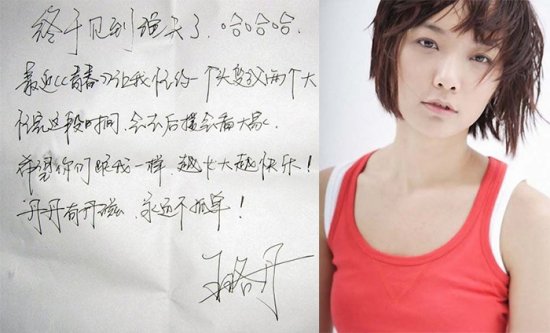 终于见到天了.哈哈哈.
最近《青春》让我一个头变两个大
忙完这段时间,会去后援会看大家.
希望你们跟我一样 越长大越快乐!
丹丹有丹磁.永远不孤单!
王珞丹